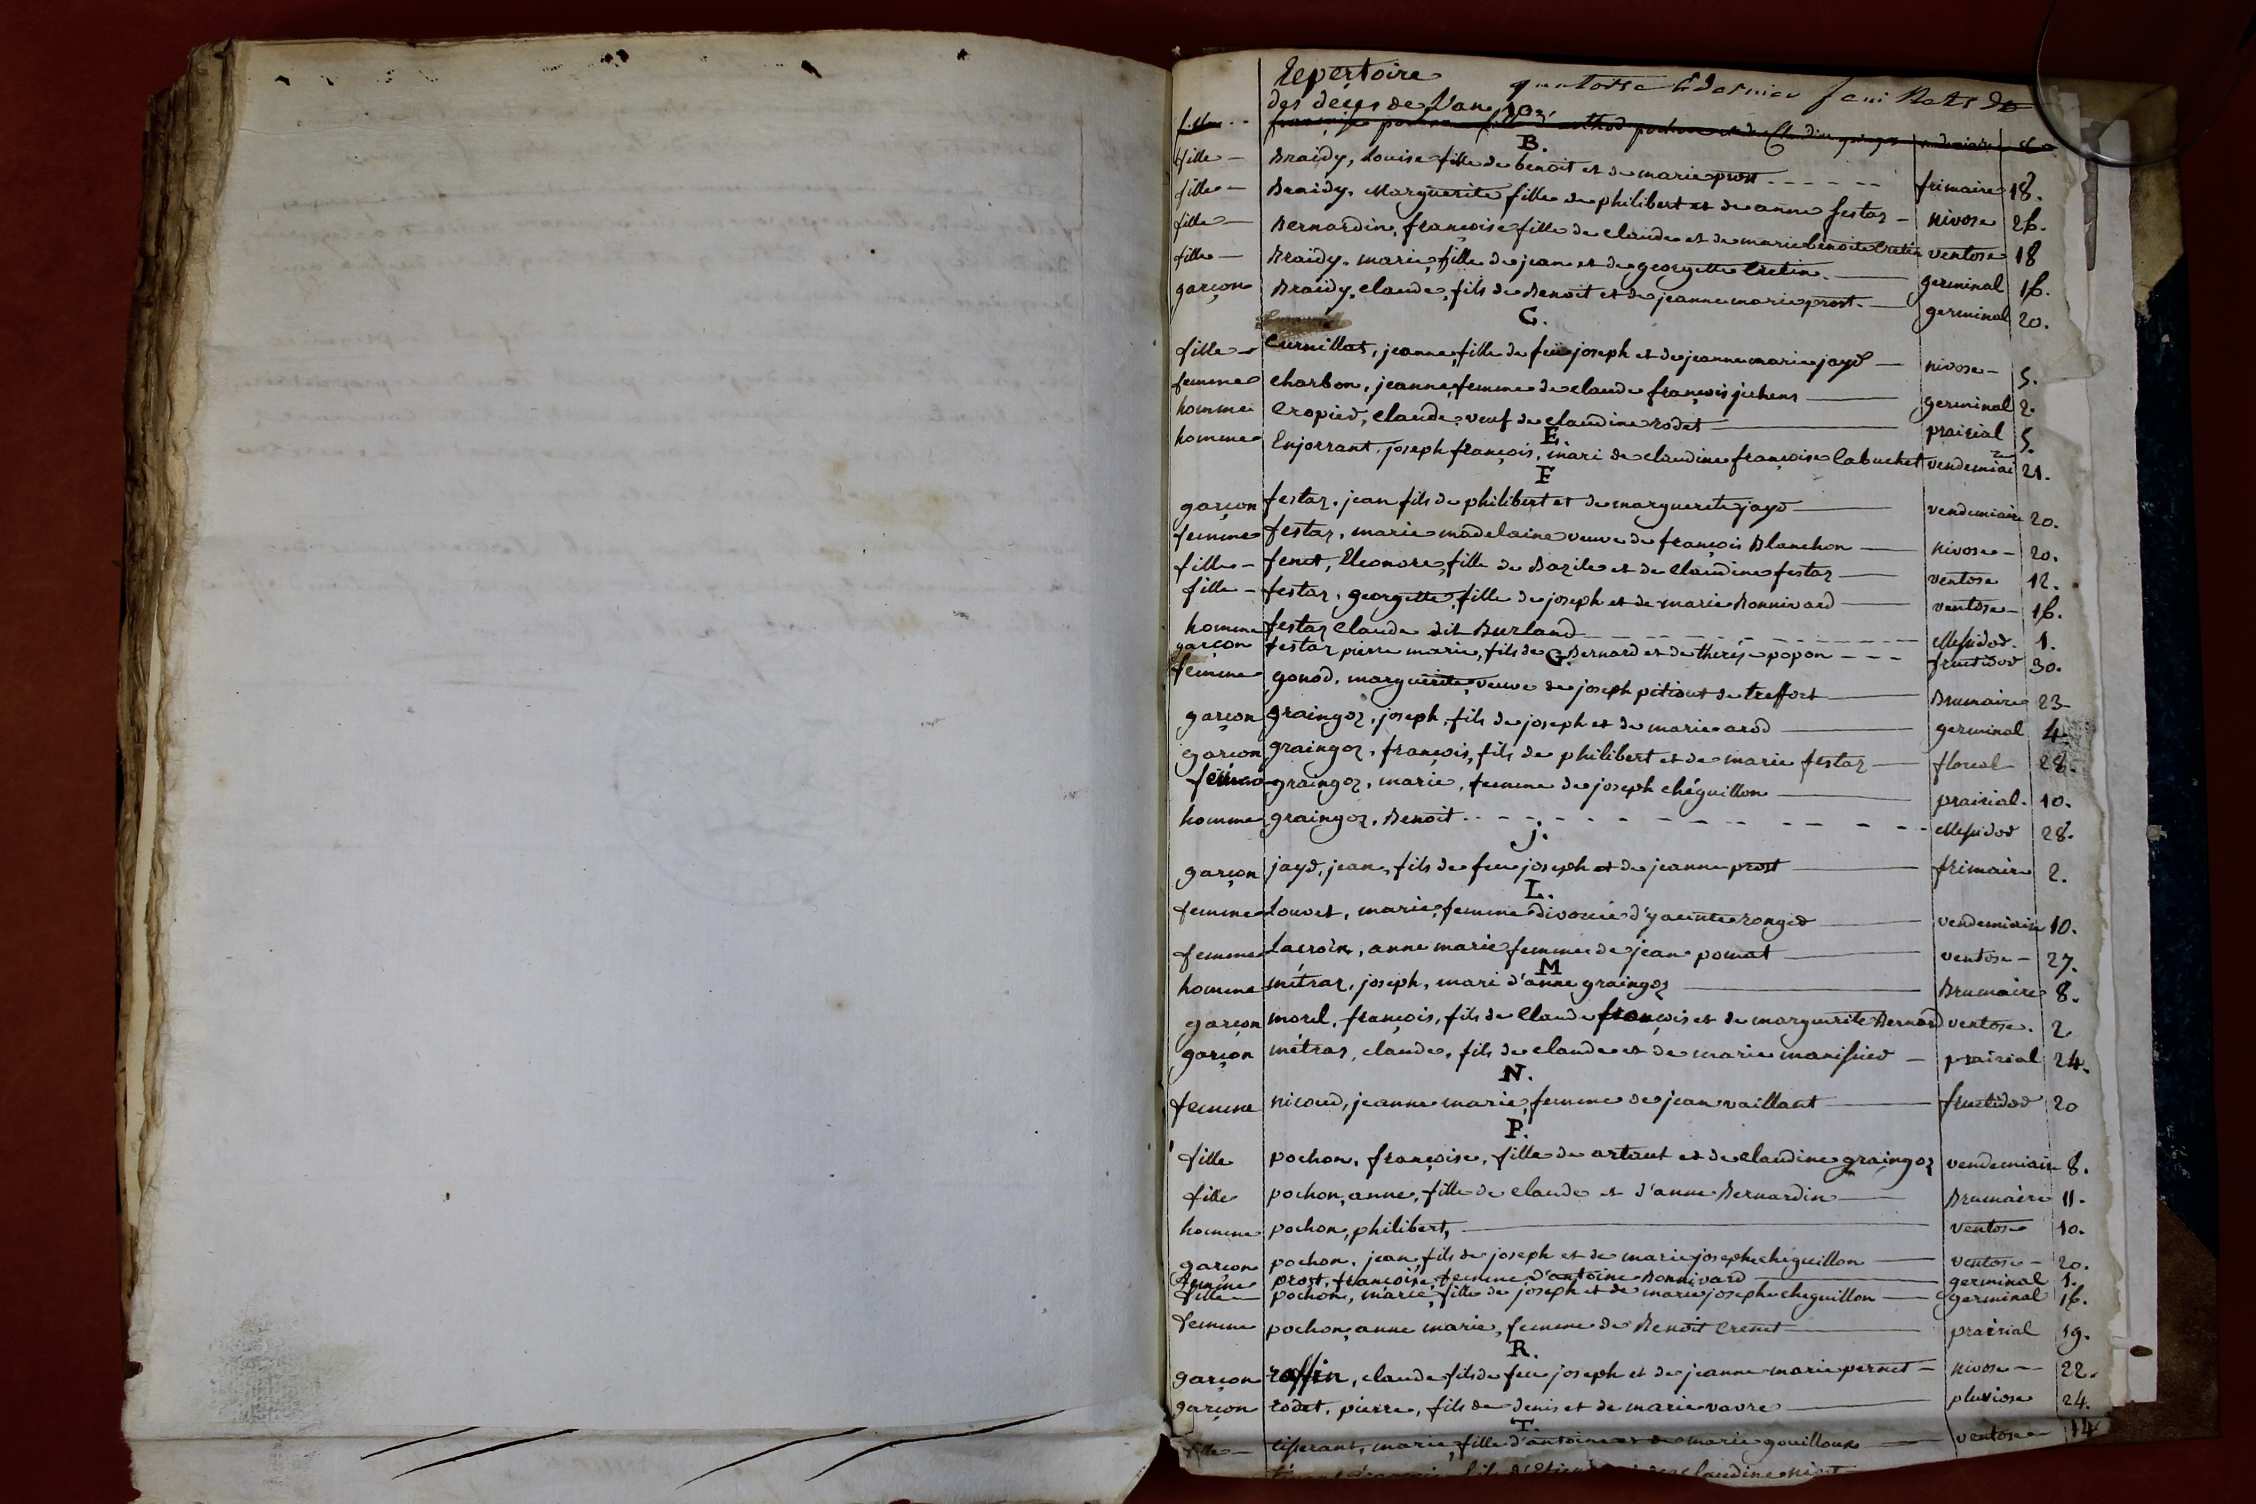 Repertoire quatorse & dernier feuillets
des décès de l'an 10.
fille
B.
fille Braidy, Louise fille de benoit et de marie prost frimaire 18.
fille Braidy, Marguerite fille de philibert et de anne festaz nivose 26.
fille Bernardin, françoise fille de claude et de marie benoite Cretin ventose 18
fille Braidy, marie, fille de jean et de georgette Cretin. germinal 16.
garçon Braidy, claude, fils de Benoit et de jeanne marie prost. germinal 20.
C.
fille Curnillat, jeanne, fille de feu joseph et de jeanne marie jayd nivose 5.
femme Charbon, jeanne, femme de claude françois germinal 2.
homme Cropied, claude, veuf de claudine rodet prairial 5.
E.
homme Enjorrant, joseph françois, mari de claudine françoise Cabuchet vendemiaire 21.
F
garçon festaz, jean fils de philibert et de marguerite jayd vendemiaire 20.
femme festaz, marie madelaine veuve de françois Blanchon nivose 20.
fille fenet, Eleonore, fille de Bazile et de claudine festaz ventose 12.
fille festaz, georgette, fille de joseph et de marie Bonnivard ventose 16.
homme festaz Claude dit Burland Messidod. 1.
garçon festaz pierre marie, fils de Bernard et de therese popon fructidod 30.
G.
femme gonod, marguerite, veuve de joseph pitiout de treffort Brumaire 23
garçon graingoz, joseph, fils de joseph et de marie arod germinal 4.
garçon graingoz, françois, fils de philibert et de marie festaz floreal 28.
femme graingoz, marie, femme de joseph chéguillon prairial. 10.
homme graingoz, Benoit Messidod 28.
j.
garçon jayd, jean, fils de feu joseph et de jeanne prost frimaire 2.
L.
femme Louvet, marie, femme divorcée d'yacinte ronged vendemiaire 10.
femme Lacroix, anne marie femme de jean pomat ventose 27.
M
homme métraz, joseph, mari d'anne graingoz Brumaire 8.
garçon morel, françois, fils de Claude françois et de marguerite Bernard ventose. 2
garçon métraz, claude, fils de claude et de marie prairial 24.
N.
femme nicoud, jeanne marie, femme de jean vaillant fructidod 20
P.
fille pochon, françoise, fille de artaut et de claudine graingoz vendemiaire 8.
fille pochon, anne, fille de claude et d'anne Bernardin Brumaire 11.
homme pochon, philibert, ventose 10.
garçon pochon, jean, fils de joseph et de marie josephe cheguillon ventose 20.
femme prost, françoise, femme d'antoine Bonnivard germinal 1.
fille pochon, marie, fille de joseph et de marie josephe cheguillon germinal 16.
femme pochon, anne marie, femme de Benoit Crenet prairial 19.
R.
garçon raffin, claude fils de feu joseph et de jeanne marie pernet nivose 22.
garçon rodet, pierre, fils de denis et de marie vavre pluviose 24.
T.
fille tisserant, marie, fille d'antoine et de marie gouilloux ventose 14